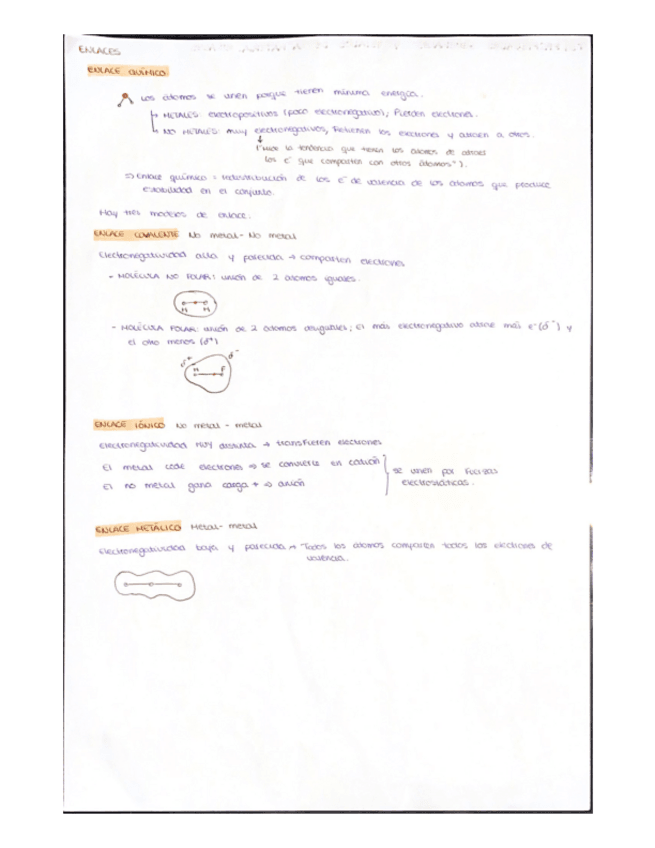 ENLACES
ENLACE QUÍMICO
Los átomos se unen porque tienen mínima energía.
METALES: electropositivos (poco electronegativos), Pierden electrones.
NO METALES: muy electronegativos, Retienen los electrones y atraen a otros.
("Mide la tendencia que tienen los átomos de atraer
los e⁻ que comparten con otros átomos").
Enlace químico = redistribución de los e⁻ de valencia de los átomos que produce
estabilidad en el conjunto.
Hay tres modelos de enlace:
ENLACE COVALENTE No metal - No metal
Electronegatividad alta y parecida → comparten electrones
- MOLÉCULA NO POLAR: unión de 2 átomos iguales.
H H
- MOLÉCULA POLAR: unión de 2 átomos desiguales; el más electronegativo atrae más e⁻ (δ⁻) y
el otro menos (δ⁺)
δ⁺ δ⁻
H F
ENLACE IÓNICO No metal - metal
Electronegatividad MUY distinta → transfieren electrones
El metal cede electrones ⇒ se convierte en catión
El no metal gana carga + ⇒ anión
se unen por fuerzas
electrostáticas.
ENLACE METÁLICO Metal - metal
Electronegatividad baja y parecida → Todos los átomos comparten todos los electrones de
valencia.